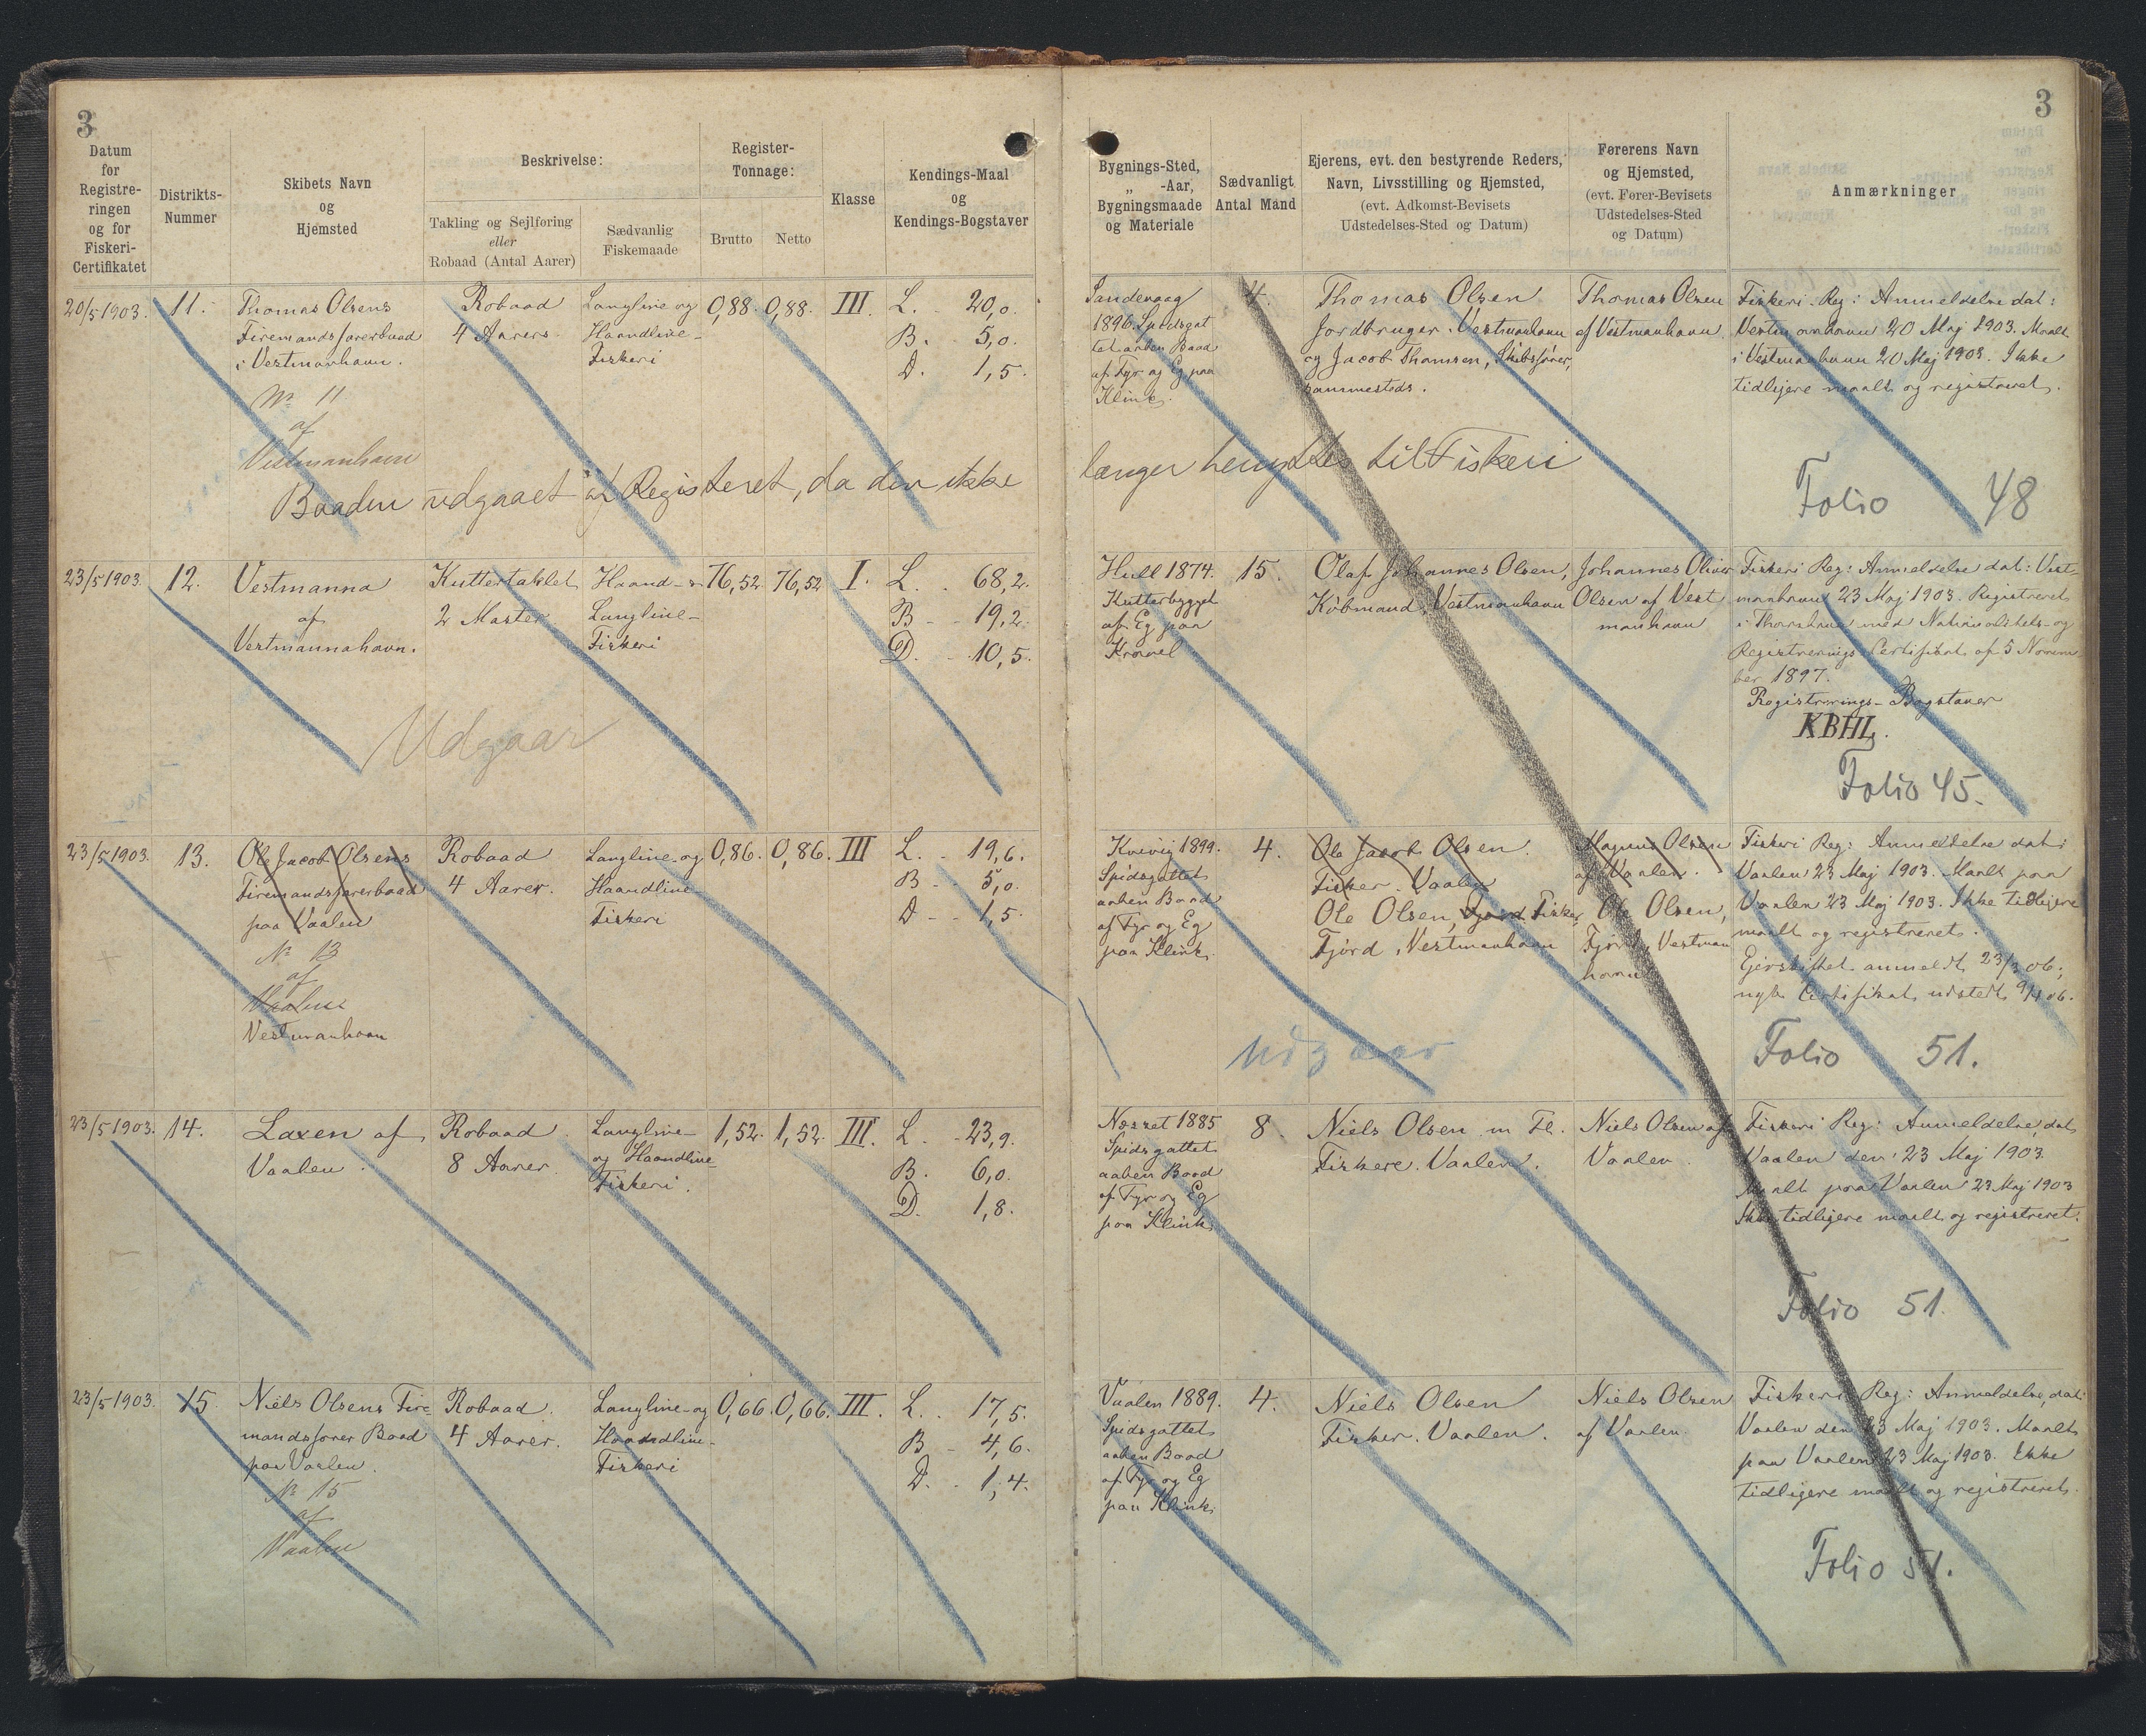 3
3
Datum
for
Registre-
ringen
og for
Fiskeri-
Certifikatet
Distrikts-
Nummer
Skibets Navn
og
Hjemsted
Beskrivelse:
Takling og Sejlføring
eller
Robaad (Antal Aarer)
Sædvanlig
Fiskemaade
Register-
Tonnage:
Brutto
Netto
Klasse
Kendings-Maal
og
Kendings-Bogstaver
Bygnings-Sted,
„ -Aar,
Bygningsmaade
og Materiale
Sædvanligt
Antal Mand
Ejerens, evt. den bestyrende Reders,
Navn, Livsstilling og Hjemsted,
(evt. Adkomst-Bevisets
Udstedelses-Sted og Datum)
Førerens Navn
og Hjemsted,
(evt. Fører-Bevisets
Udstedelses-Sted
og Datum)
Anmærkninger
20/5 1903.
11.
Thomas Olsens
Firemandsfarerbaad
i Vestmanhavn.
Nr 11
af
Vestmanhavn
Robaad
4 Aarers
Langline og
Haandline-
Fiskeri
0,88.
0,88.
III.
L. 20,0.
B. 5,0.
D. 1,5.
Sandevaag
1896. Spidsgat
tet aaben Baad
af Fyr og Eg paa
Klink.
4.
Thomas Olsen
Jordbruger. Vestmanhavn
og Jacob Thomsen, Skibsfører,
sammesteds.
Thomas Olsen
af Vestmanhavn.
Fiskeri. Reg: Anmeldelse dat:
Vestmanhavn 20 Maj 1903. Maalt
i Vestmanhavn 20 Maj 1903. Ikke
tidligere maalt og registreret.
Baaden udgaaet af Registeret, da den ikke
længer benyttes til Fiskeri
Folio 48
23/5 1903.
12.
Vestmanna
af
Vestmannahavn.
Kuttertaklet
2 Master
Haand- &
Langline-
Fiskeri
76,52
76,52
I.
L. 68,2.
B. 19,2.
D. 10,5.
Hull 1874.
Kutterbygget
af Eg paa
Kravel
15.
Olaf Johannes Olsen,
Købmand, Vestmanhavn
Johannes Oliver
Olsen af Vest
manhavn
Fiskeri Reg: Anmeldelse dat: Vest-
manhavn 23 Maj 1903. Registreret
i Thorshavn med Nationalitets- og
Registrerings-Certifikat af 5 Novem-
ber 1897.
Registrerings-Bogstaver
KBHL.
Udgaar
Folio 45.
23/5 1903.
13.
Ole Jacob Olsens
Firemandsfarerbaad
paa Vaalen
Nr 13
af
Vaalen
Vestmanhavn
Robaad
4 Aarer.
Langline og
Haandline
Fiskeri
0,86.
0,86.
III
L. 19,6.
B. 5,0.
D. 1,5.
Kvivig 1899.
Spidsgattet
aaben Baad
af Fyr og Eg
paa Klink.
4.
Ole Jacob Olsen.
Fisker. Vaalen
Ole Olsen, Fisker,
Fjørd, Vestmanhavn
Magnus Olsen
af Vaalen.
Ole Olsen,
Fjørd, Vestman
havn
Fiskeri Reg: Anmeldelse dat:
Vaalen 23 Maj 1903. Maalt paa
Vaalen 23 Maj 1903. Ikke tidligere
maalt og registreret.
Ejerskiftet anmeldt 23/3 06;
nyt Certifikat udstedt 9/4 06.
udgaar
Folio 51.
23/5 1903.
14.
Laxen af
Vaalen.
Robaad
8 Aarer
Langline-
og Haandline
Fiskeri.
1,52.
1,52.
III.
L. 23,9.
B. 6,0.
D. 1,8.
Næsset 1885
Spidsgattet
aaben Baad
af Fyr og Eg
paa Klink
8.
Niels Olsen m Fl.
Fiskere. Vaalen.
Niels Olsen af
Vaalen
Fiskeri Reg: Anmeldelse, dat
Vaalen den 23 Maj 1903.
Maalt paa Vaalen 23 Maj 1903
Ikke tidligere maalt og registreret.
Folio 51.
23/5 1903.
15.
Niels Olsens Fire-
mandsfarer Baad
paa Vaalen.
Nr 15
af
Vaalen
Robaad.
4 Aarer.
Langline og
Haandline-
Fiskeri
0,66.
0,66.
III.
L. 17,5.
B 4,6.
D. 1,4.
Vaalen 1889.
Spidsgattet
aaben Baad
af Fyr og Eg
paa Klink
4.
Niels Olsen
Fisker. Vaalen.
Niels Olsen
af Vaalen.
Fiskeri Reg: Anmeldelse, dat:
Vaalen den 23 Maj 1903. Maalt
paa Vaalen 23 Maj 1903. Ikke
tidligere maalt og registreret.
Folio 51.